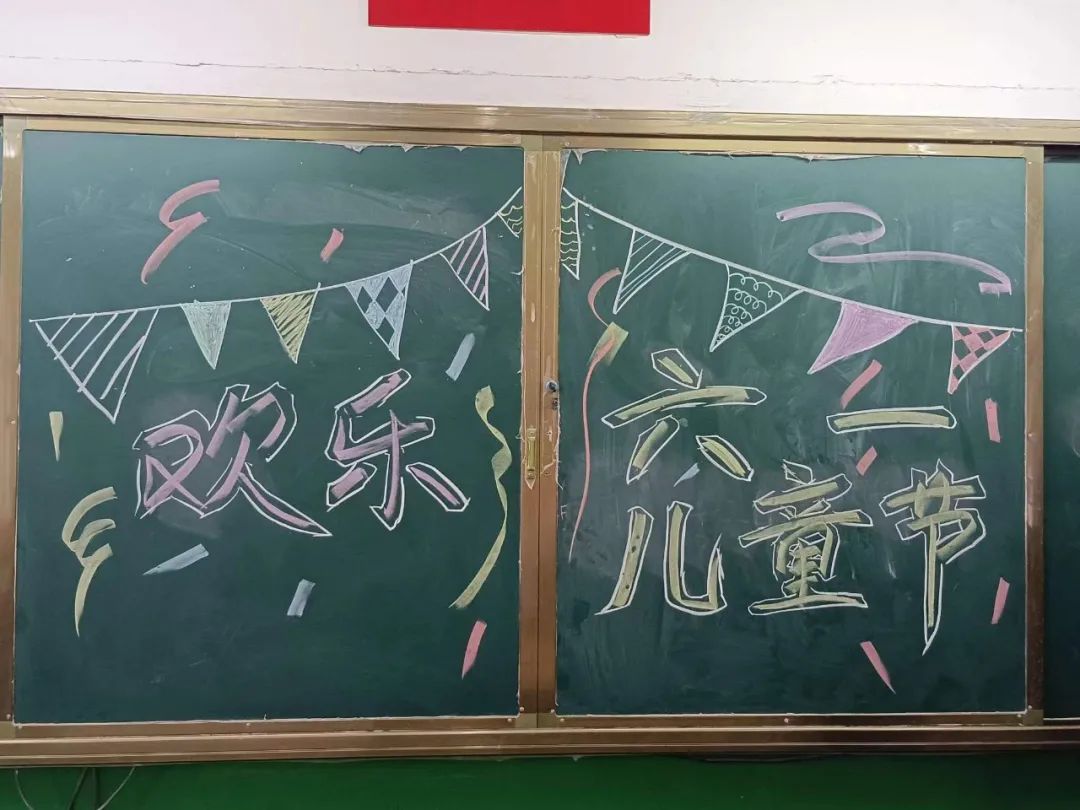 欢乐
六一
儿童节